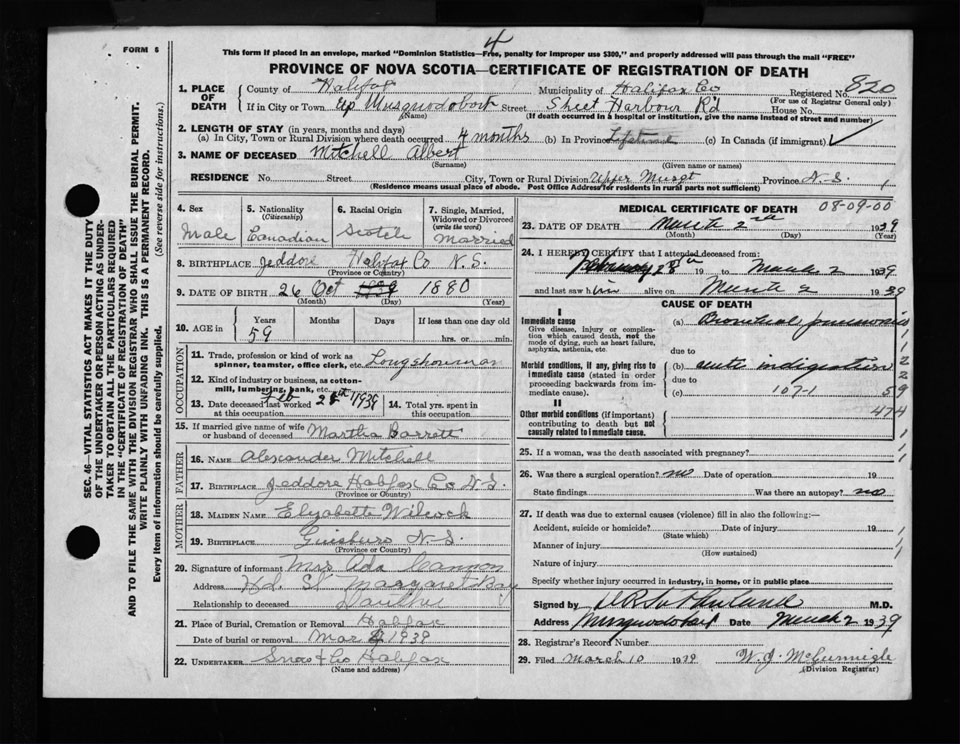 FORM 5
4
This form if placed in an envelope, marked "Dominion Statistics—Free, penalty for improper use $300," and properly addressed will pass through the mail "FREE"
PROVINCE OF NOVA SCOTIA—CERTIFICATE OF REGISTRATION OF DEATH
1. PLACE OF DEATH County of Halifax Municipality of Halifax Co Registered No. 820
(For use of Registrar General only)
If in City or Town Up Musquodoboit Street Sheet Harbour Rd House No.
(Name) (If death occurred in a hospital or institution, give the name instead of street and number)
2. LENGTH OF STAY (in years, months and days)
(a) In City, Town or Rural Division where death occurred 4 months (b) In Province Lifetime (c) In Canada (if immigrant)
3. NAME OF DECEASED Mitchell Albert
(Surname) (Given name or names)
RESIDENCE No. Street City, Town or Rural Division Upper Musqt Province N.S.
(Residence means usual place of abode. Post Office Address for residents in rural parts not sufficient)
4. Sex Male
5. Nationality (Citizenship) Canadian
6. Racial Origin Scotch
7. Single, Married, Widowed or Divorced (write the word) Married
8. BIRTHPLACE Jeddore Halifax Co N.S.
(Province or Country)
9. DATE OF BIRTH 26 Oct 1880
(Month) (Day) (Year)
10. AGE in Years Months Days If less than one day old
59 hrs. or min.
OCCUPATION
11. Trade, profession or kind of work as spinner, teamster, office clerk, etc. Longshoreman
12. Kind of industry or business, as cotton-mill, lumbering, bank, etc.
13. Date deceased last worked at this occupation Feb 28th 1938
14. Total yrs. spent in this occupation
15. If married give name of wife or husband of deceased Martha Barrett
FATHER
16. NAME Alexander Mitchell
17. BIRTHPLACE Jeddore Halifax Co N.S.
(Province or Country)
MOTHER
18. MAIDEN NAME Elizabeth Wilcock
19. BIRTHPLACE Guysboro N.S.
(Province or Country)
20. Signature of informant Mrs Ada Cannon
Address Hd. St Margaret Bay
Relationship to deceased Daughter
21. Place of Burial, Cremation or Removal Halifax
Date of burial or removal Mar 4 1939
22. UNDERTAKER Snow & Co Halifax
(Name and address)
MEDICAL CERTIFICATE OF DEATH 08-09-00
23. DATE OF DEATH March 2nd 1939
(Month) (Day) (Year)
24. I HEREBY CERTIFY that I attended deceased from:
February 28th 19 to March 2 1939
and last saw him alive on March 2 1939
CAUSE OF DEATH
I
Immediate cause (a) Bronchial pneumonia
Give disease, injury or complication which caused death, not the mode of dying, such as heart failure, asphyxia, asthenia, etc.
due to
Morbid conditions, if any, giving rise to immediate cause (stated in order proceeding backwards from immediate cause). (b) acute indigestion
due to
(c) 107-1 59
II
474
Other morbid conditions (if important) contributing to death but not causally related to immediate cause.
25. If a woman, was the death associated with pregnancy?
26. Was there a surgical operation? no Date of operation 19
State findings Was there an autopsy? no
27. If death was due to external causes (violence) fill in also the following:—
Accident, suicide or homicide? Date of injury 19
(State which)
Manner of injury
(How sustained)
Nature of injury
Specify whether injury occurred in industry, in home, or in public place
Signed by D R Sutherland M.D.
Address Musquodoboit Date March 2 1939
28. Registrar's Record Number
29. Filed March 10 1939 W. J. McCunnigle
(Division Registrar)
SEC. 46—VITAL STATISTICS ACT MAKES IT THE DUTY
OF THE UNDERTAKER OR PERSON ACTING AS UNDER-
TAKER TO OBTAIN ALL THE PARTICULARS REQUIRED
IN THE "CERTIFICATE OF REGISTRATION OF DEATH"
AND TO FILE THE SAME WITH THE DIVISION REGISTRAR WHO SHALL ISSUE THE BURIAL PERMIT.
WRITE PLAINLY WITH UNFADING INK. THIS IS A PERMANENT RECORD.
Every item of information should be carefully supplied. (See reverse side for instructions.)